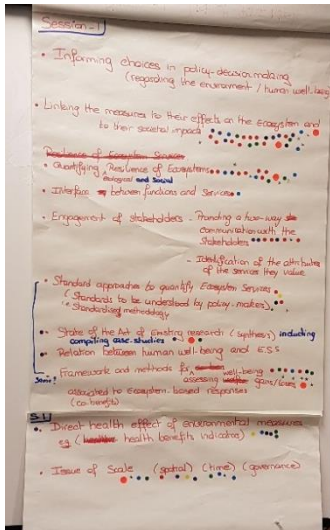 Session-1
• Informing choices in policy-decision making
(regarding the environment / human well-being
• Linking the measures to their effects on the Ecosystem and
to their societal impact
Resilience of Ecosystem Services
• Quantifying Resilience of Ecosystems
ecological and Social
• Interface between functions and Services
• Engagement of stakeholders - Providing a two-way
communication with the
stakeholders
- Identification of the attributes
of the services they value
• Standard approaches to quantify Ecosystem Services
(Standards to be understood by policy-makers)
i.e. Standardised methodology
• State of the Art of Existing research (synthesis) including
compiling case-studies
• Relation between human well-being and E.S.S
• Framework and methods for well-being
Some?
assessing gains/losses
associated to Ecosystem-based responses
(co-benefits)
S.1
• Direct health effect of environmental measures
eg (health benefits indicators)
• Issue of Scale (spatial) (time) (governance)